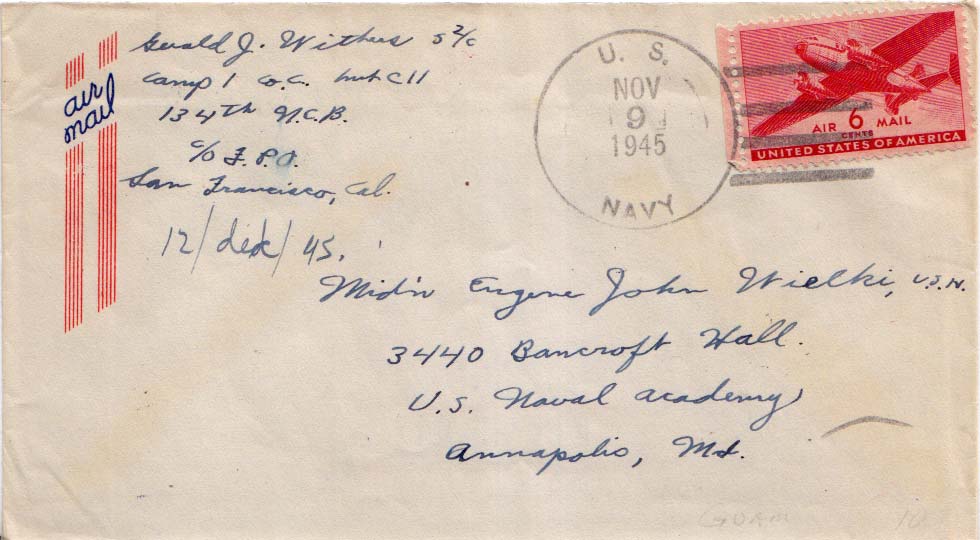 air
mail
Gerald J. Withus S 2/c
Camp 1 Co. C. hut C11
134th N.C.B.
c/o F.P.O.
San Francisco, Cal.
12/ /45.
U. S.
NOV
9
1945
NAVY
AIR 6 MAIL
CENTS
UNITED STATES OF AMERICA
Mid'n Eugene John Wielki, U.S.N.
3440 Bancroft Hall.
U.S. Naval Academy
Annapolis, Md.
GUAM 10